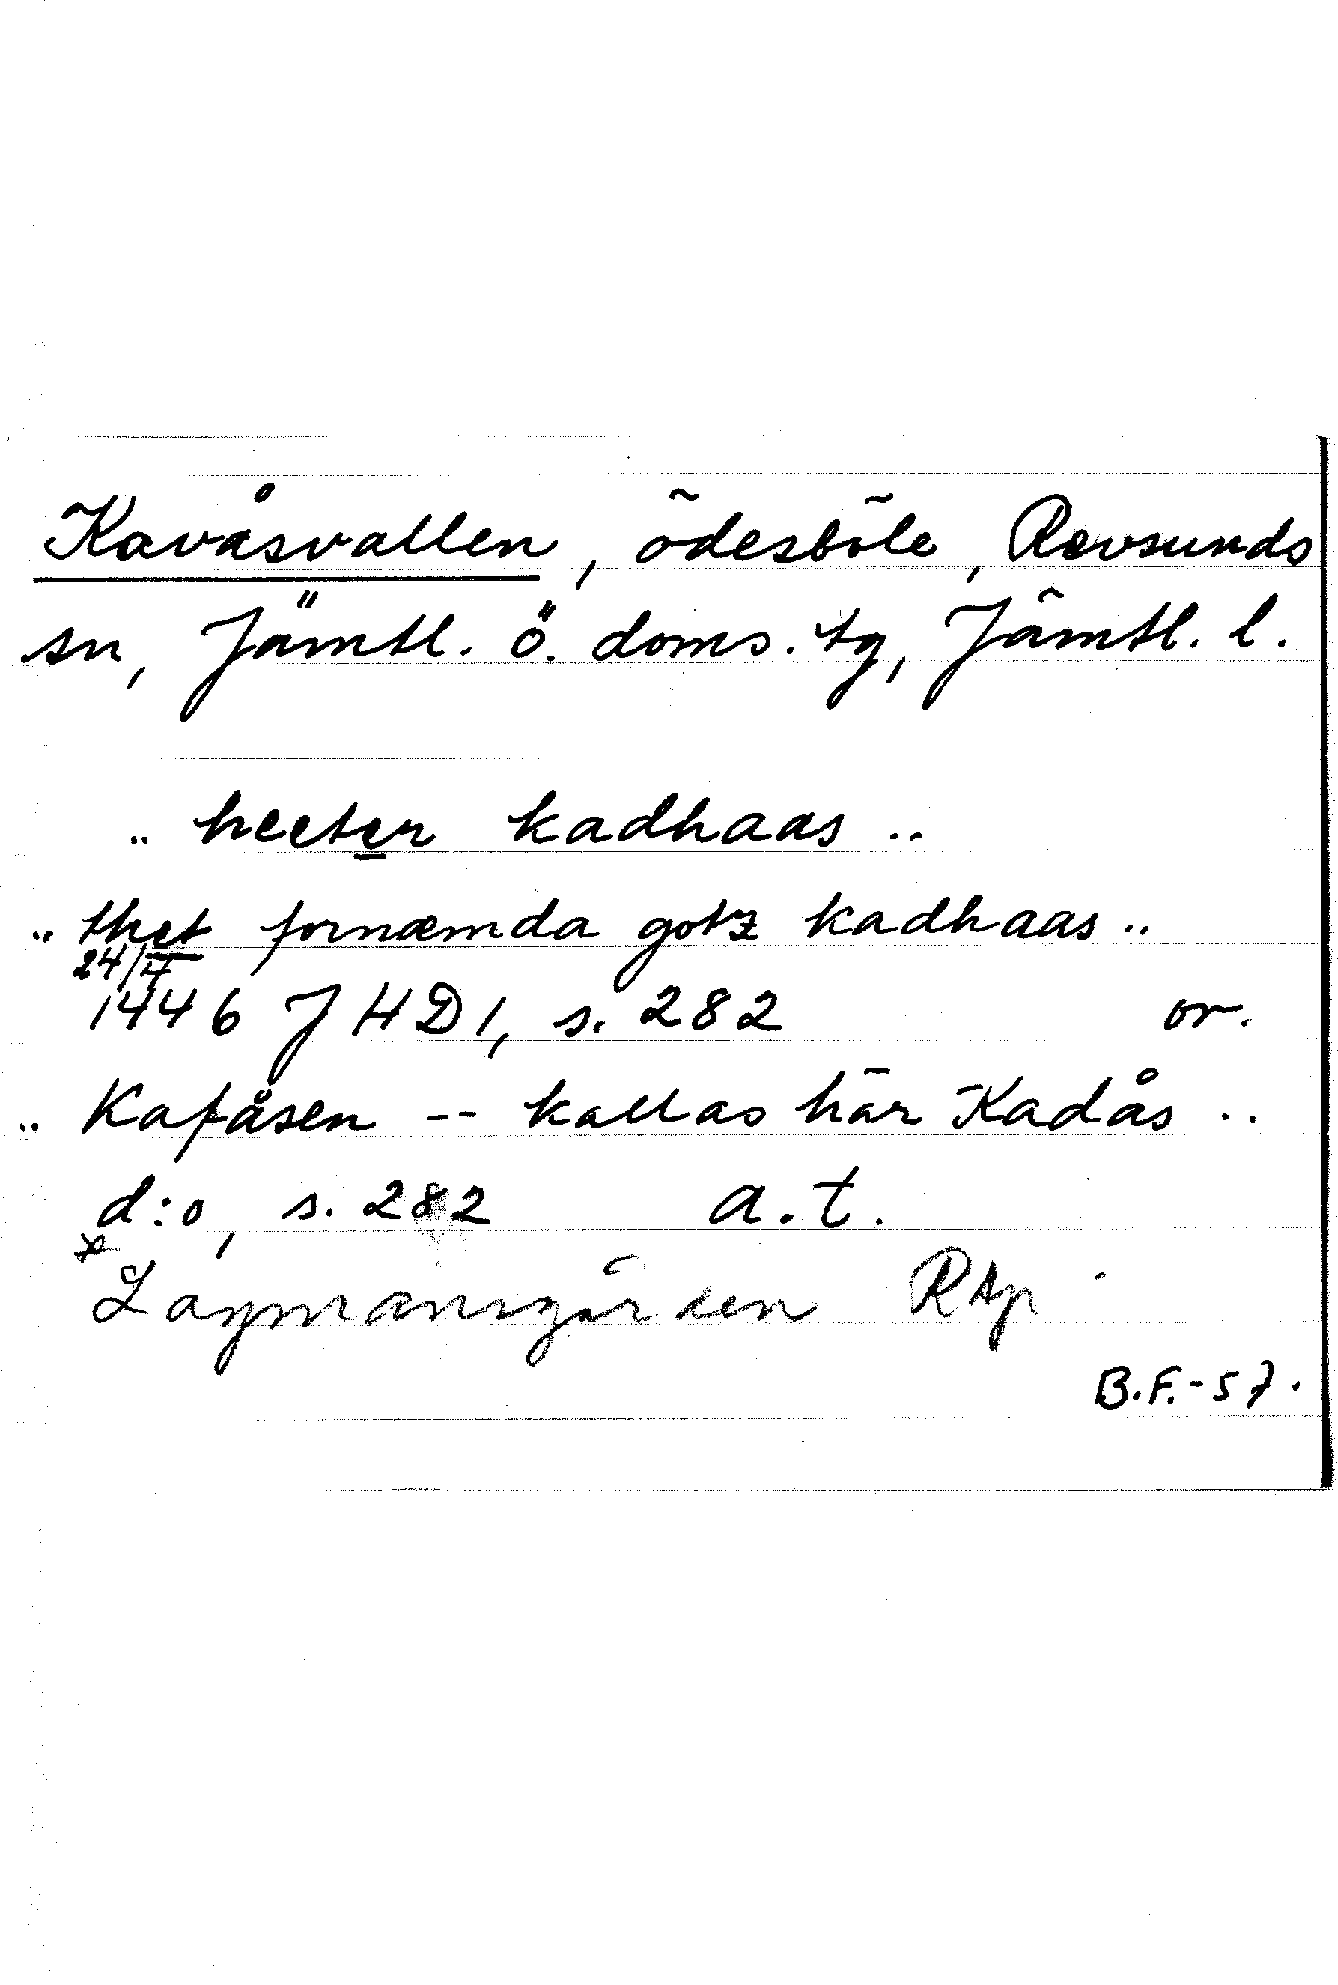 Kavåsvallen, ödesböle, Revsunds
sn, Jämtl. ö. doms. tg, Jämtl. l.
.. heeter kadhaas ..
.. thet fornæmda gotz kadhaas ..
24/4
1446 JHD1, s. 282 or.
.. Kafåsen -- kallas här Kadås ..
d:o, s. 282 a.t.
Lagmansgården
B.F.-57.